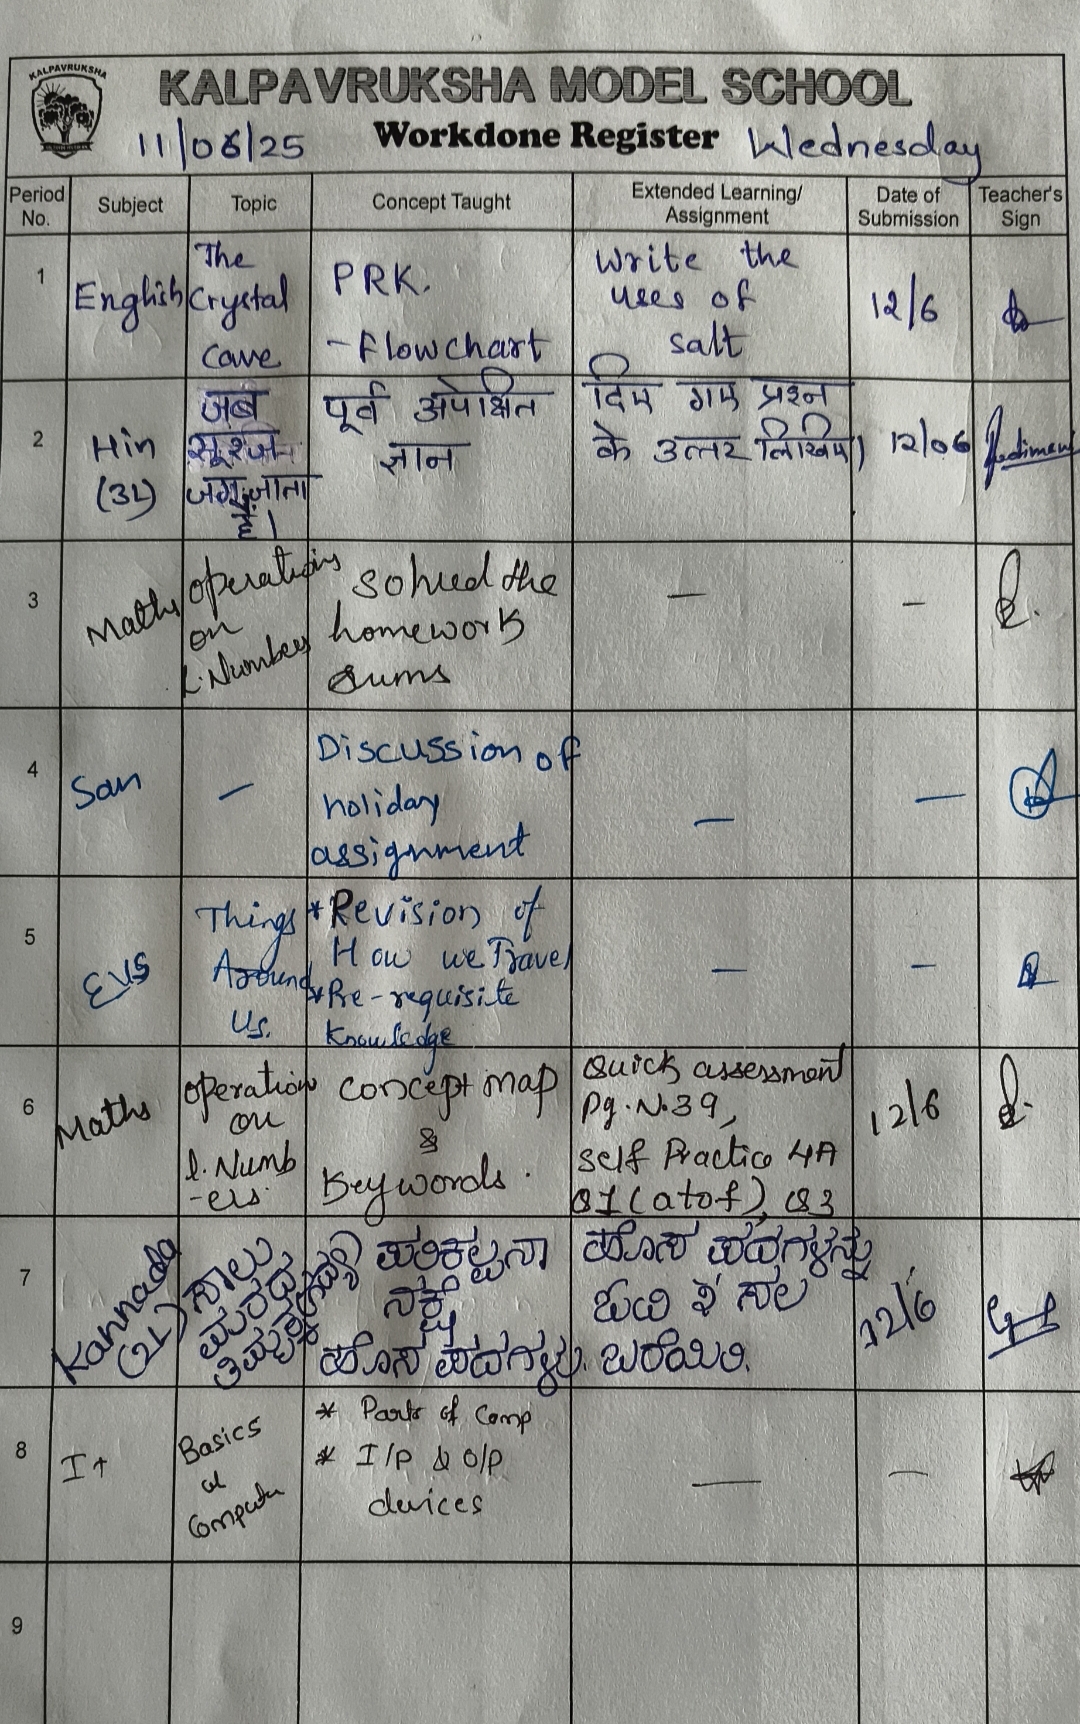 KALPAVRUKSHA
KALPAVRUKSHA MODEL SCHOOL
11/06/25 Workdone Register Wednesday
Period No. Subject Topic Concept Taught Extended Learning/ Assignment Date of Submission Teacher's Sign
1 English The Crystal Cave
PRK.
-Flowchart
write the
uses of
salt
12/6
2 Hin
(3L)
जब
सूरज
जग जाता
है।
पूर्व अपेक्षित
ज्ञान
दिए गए प्रश्न
के उत्तर लिखिए।
12/06
3 Maths
operations
on
l.Numbers
solved the
homework
sums
—
—
4 San
—
Discussion of
holiday
assignment
—
—
5 EVS
Things
Around
Us.
*Revision of
How we Travel
*Pre-requisite
knowledge
—
—
6 Maths
operation
on
l.Numb
-ers.
concept map
&
keywords.
Quick assessment
Pg.N.39,
self Practice 4A
Q1(a to f), Q3
12/6
7 Kannada
(2L)
ಸಾಲು
ಮರದ
ತಿಮ್ಮಕ್ಕ
ಪರಿಕಲ್ಪನಾ
ನಕ್ಷೆ
ಹೊಸ ಪದಗಳು.
ಹೊಸ ಪದಗಳನ್ನು
ಓದಿ ೩ ಸಲ
ಬರೆಯಿರಿ.
12/6
8 It
Basics
of
Computer
* Parts of Comp
* I/P & O/P
devices
—
—
9